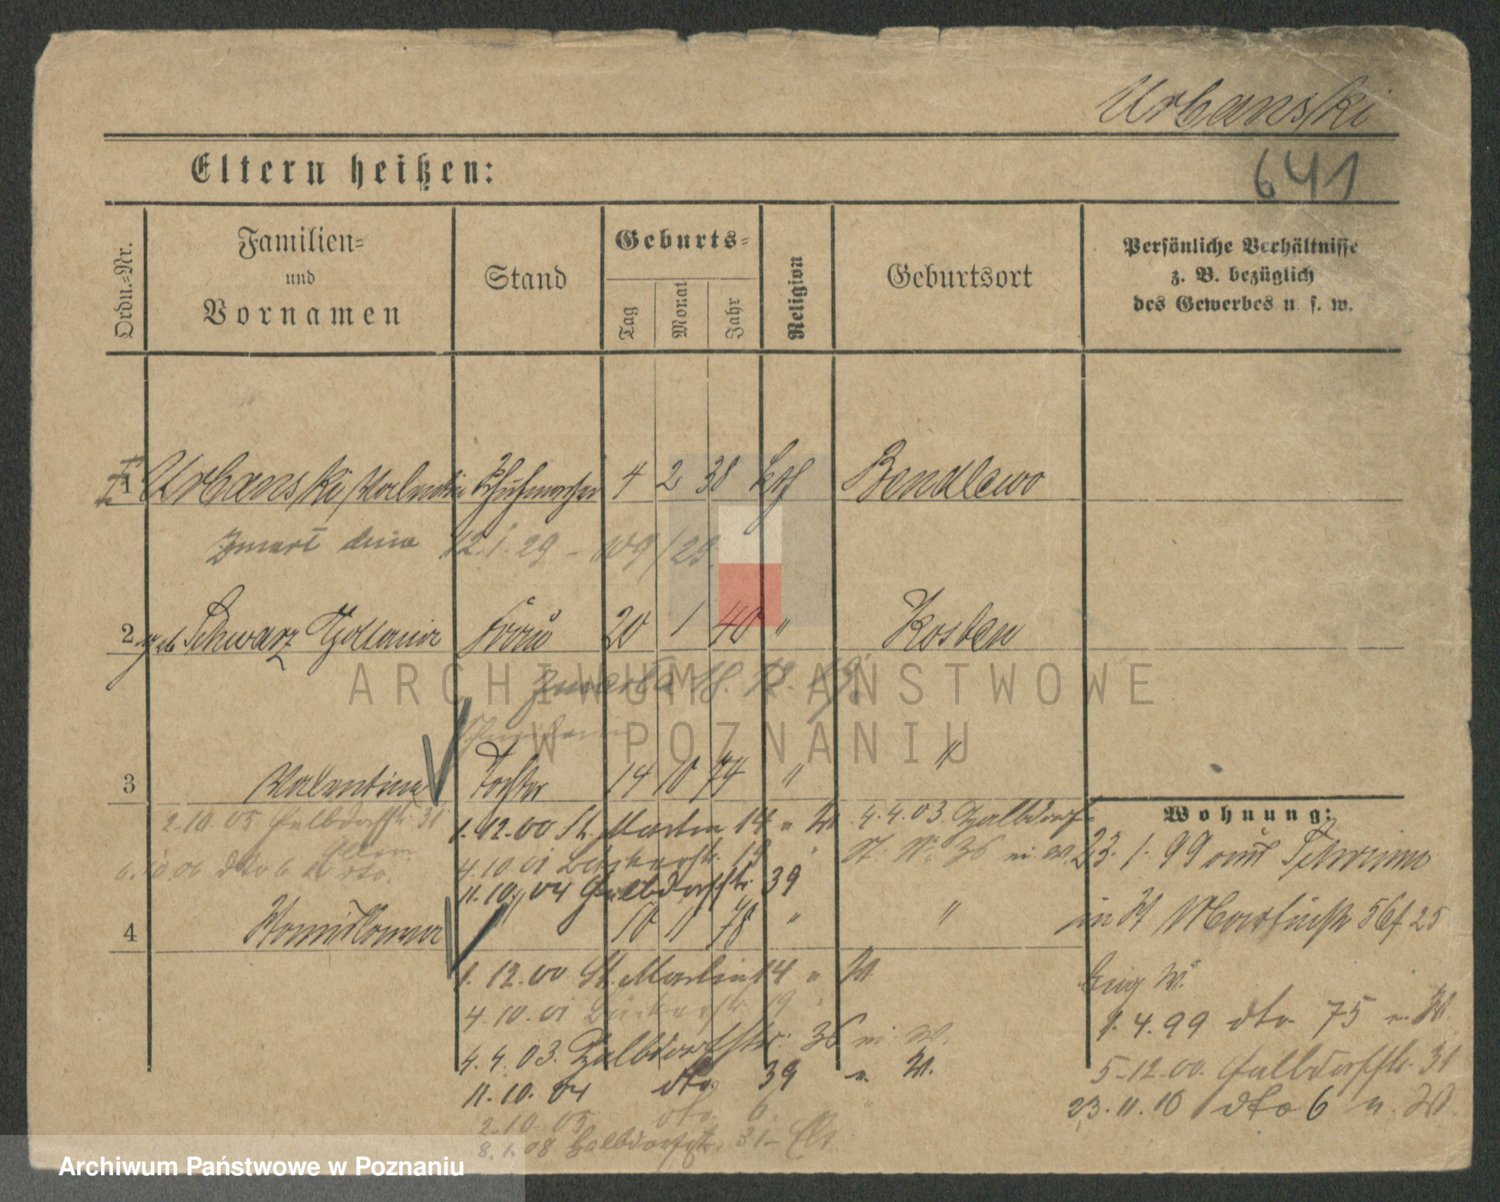 Urbanski
641
Eltern heißen:
Ordn.-Nr.
Familien-
und
Vornamen
Stand
Geburts-
Tag
Monat
Jahr
Religion
Geburtsort
Persönliche Verhältnisse
z. B. bezüglich
des Gewerbes u. s. w.
1 Urbanski, Valentin Schuhmacher 4 2 38 kath Bendlewo
Zmarł dnia 12.1.29 - 109/29
2 geb Schwarz Frau 20 1 40 " Kosten
Zmarła 18. 12.
3 Valentina Tochter 14 10 74 " "
2.10.05 Halbdorfstr 31
1.12.00 St. Martin 14 " W
4.4.03. Halbdorf-
6.10.06 dto 6
4.10.01 Bäckerstr. 19 "
St. W. 36
11.10.04 Halbdorfstr. 39
4 " 10 11 78 " "
1.12.00 St. Martin 14 " W.
4.10.01 Bäckerstr. 19 "
4.4.03. Halbdorfstr. 36
11.10.04 dto. 39 W.
2.10.05. dto. 6.
8.1.08 Halbdorfstr. 31
Wohnung:
23.1.99 aus Schrimm
in St Martinstr 56 25
1.4.99 dto. 75
5.12.00. Halbdorfstr. 31
23.11.10 dto 6
ARCHIWUM PAŃSTWOWE
W POZNANIU
Archiwum Państwowe w Poznaniu